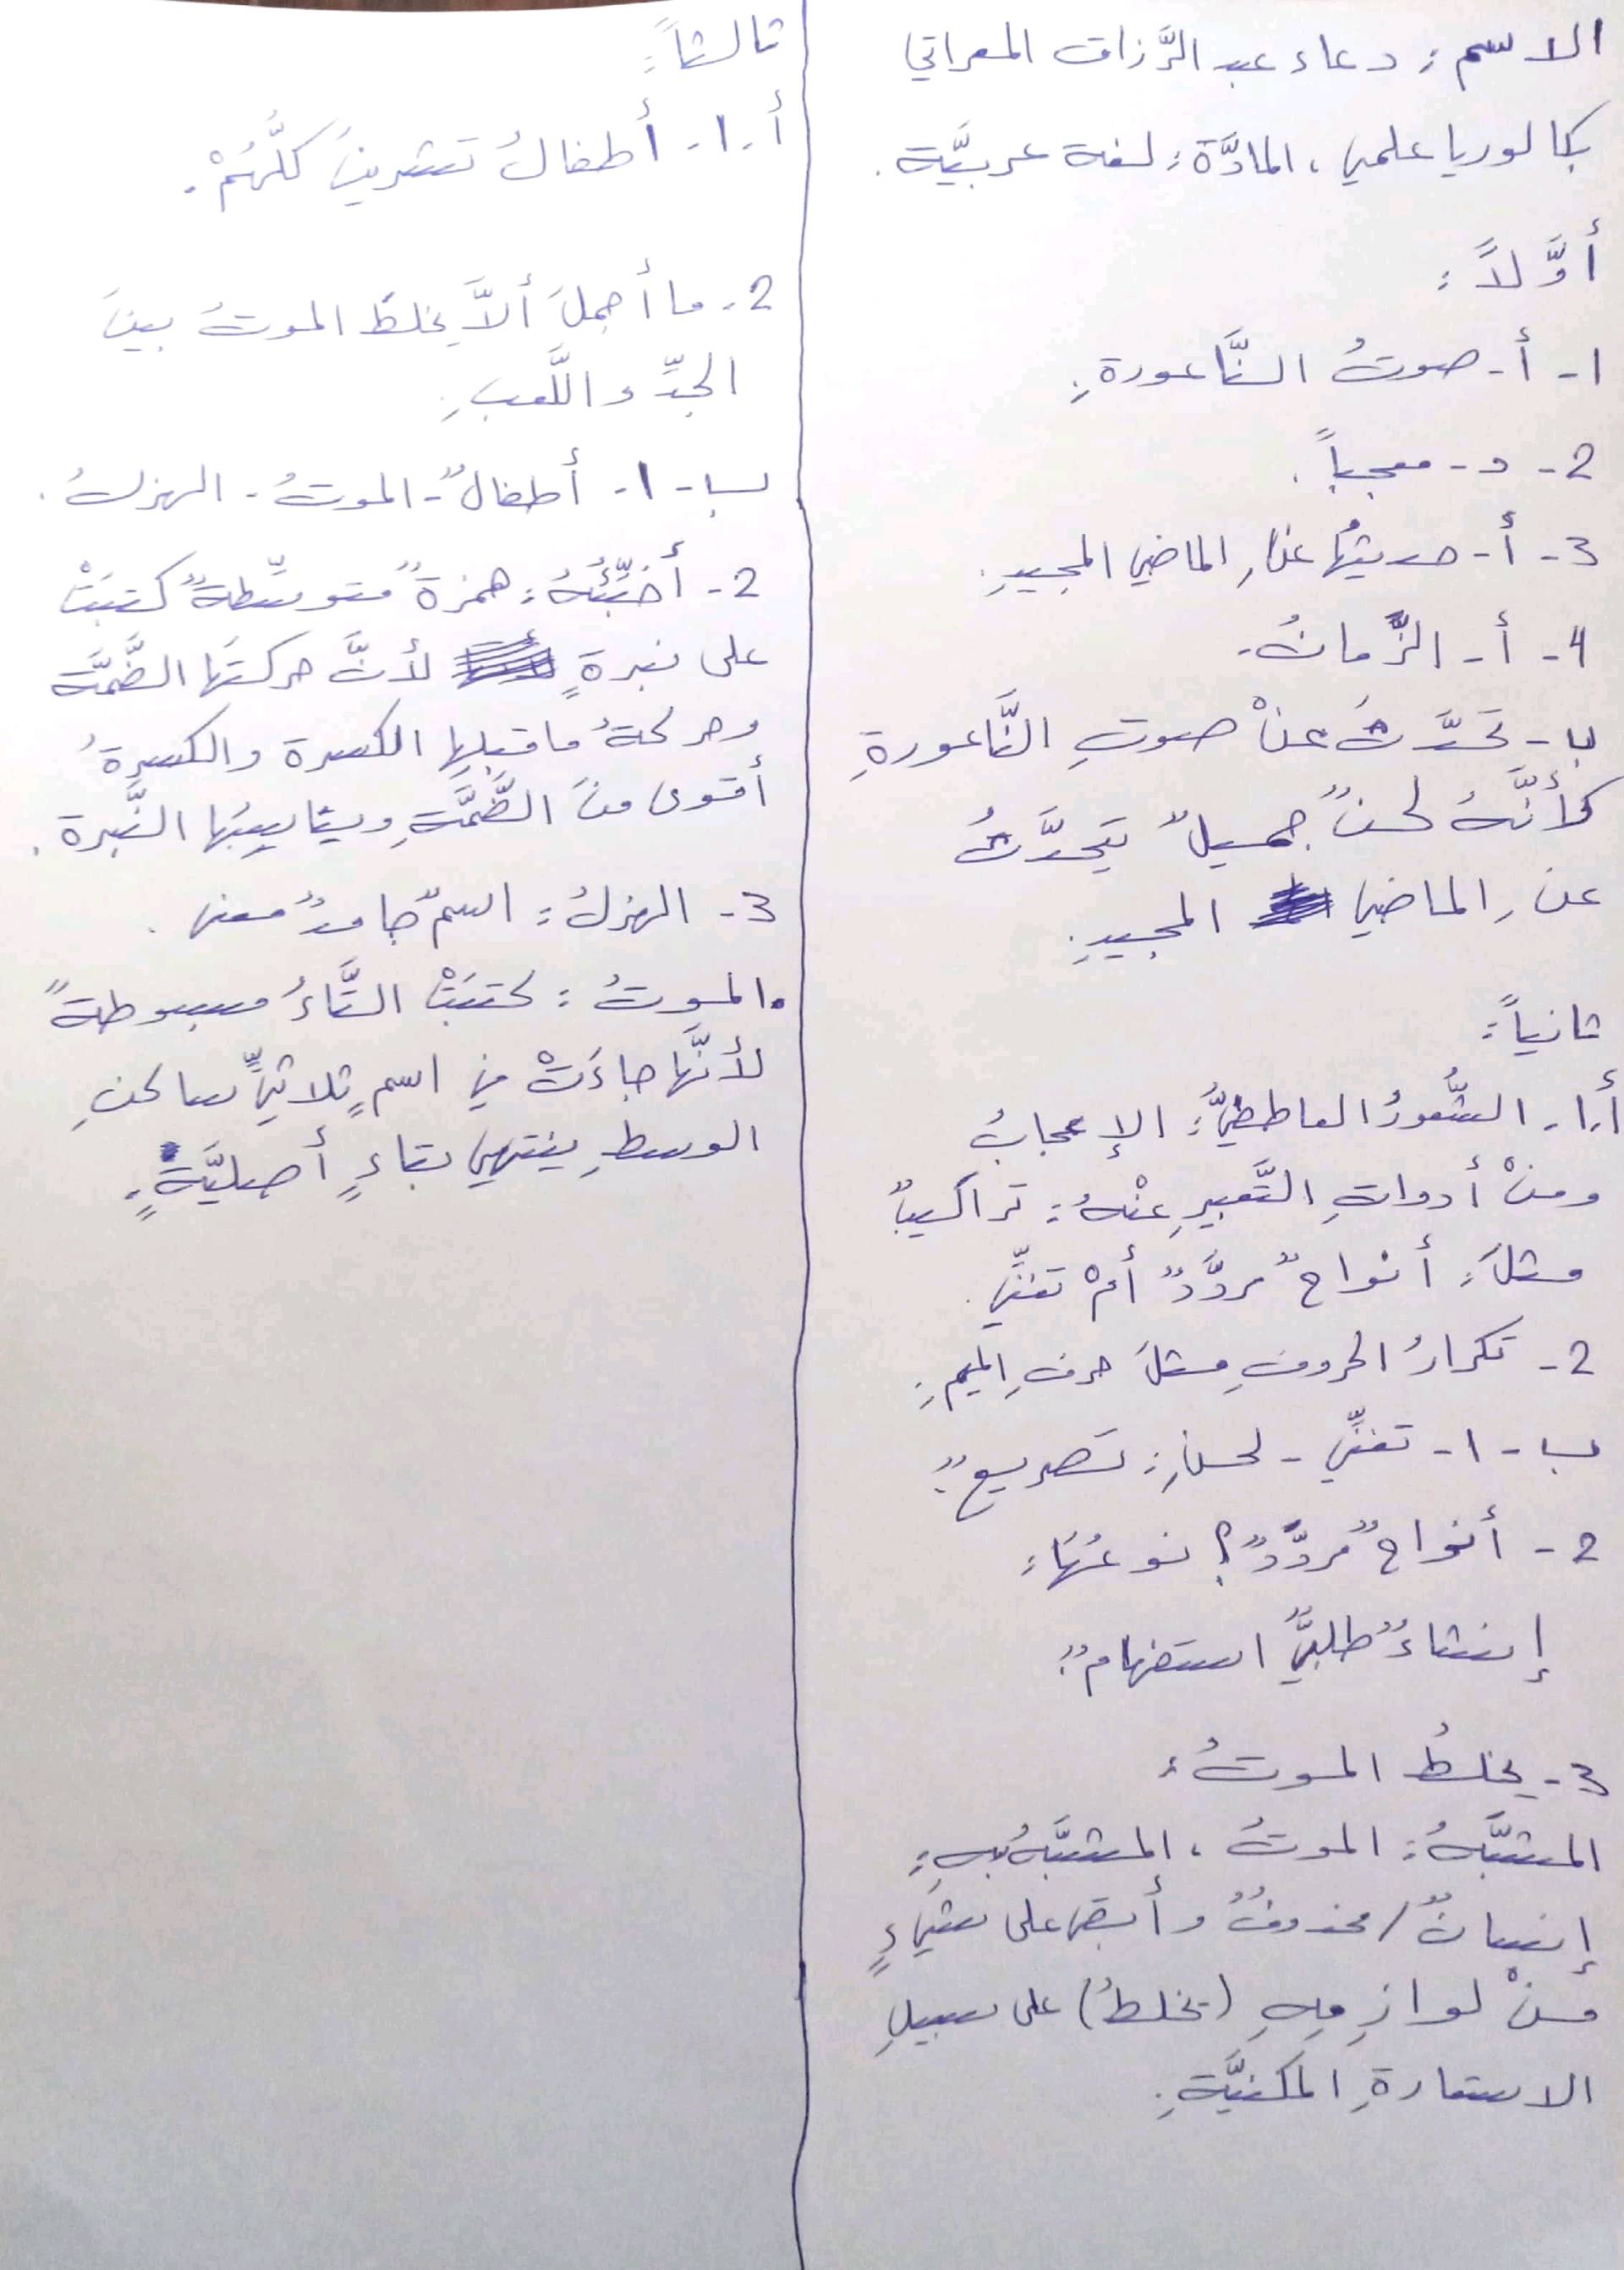 الاسم: دعاء عبد الرَّزاق المعراتي
بكالوريا علمي، المادَّة: لغة عربيَّة.
أوَّلاً:
1- أ- صوتُ النَّاعورةِ.
2- د- معجباً.
3- أ- حديثُها عنِ الماضي المجيدِ.
4- أ- الزَّمانُ.
ب- تحدَّثَ عنْ صوتِ النَّاعورةِ
كأنَّهُ لحنٌ جميلٌ يتحدَّثُ
عنِ الماضي المجيدِ.
ثانياً:
أ.1. الشُّعورُ العاطفيُّ: الإعجابُ
ومنْ أدواتِ التَّعبيرِ عنْهُ: تراكيبٌ
مثلَ: أنواحٌ مردَّدٌ أمْ تغنِّي.
2- تكرارُ الحروفِ مثلَ حرفِ الميمِ.
ب- 1- تغنِّي - لحنِ: تصريعٌ.
2- أنواحٌ مردَّدٌ؟ نوعُهَا:
إنشاءٌ طلبيٌّ استفهامٌ.
3- يخلطُ الموتُ:
المشبَّهُ: الموتُ، المشبَّهُ بهِ:
إنسانٌ/محذوفٌ وأبقى على شيءٍ
منْ لوازمِهِ (يخلطُ) على سبيلِ
الاستعارةِ المكنيَّةِ.
ثالثاً:
أ.1. أطفالُ تشرينَ كلُّهُمْ.
2. ما أجملَ ألاَّ يخلطَ الموتُ بينَ
الجدِّ واللَّعبِ.
ب- 1- أطفالٌ - الموتُ - الهزلُ.
2- أخبِّئُهُ: همزةٌ متوسِّطةٌ كتبَتْ
على نبرةٍ لأنَّ حركتَها الضَّمَّة
وحركةُ ما قبلِها الكسرة والكسرةُ
أقوى منَ الضَّمَّةِ ويناسِبُها النَّبرة.
3- الهزلُ: اسمٌ جامدٌ معنى.
والموتُ: كتبَتْ التَّاءُ مبسوطةً
لأنَّها جاءَتْ في اسمٍ ثلاثيٍّ ساكنِ
الوسطِ ينتهي بتاءٍ أصليَّةٍ.